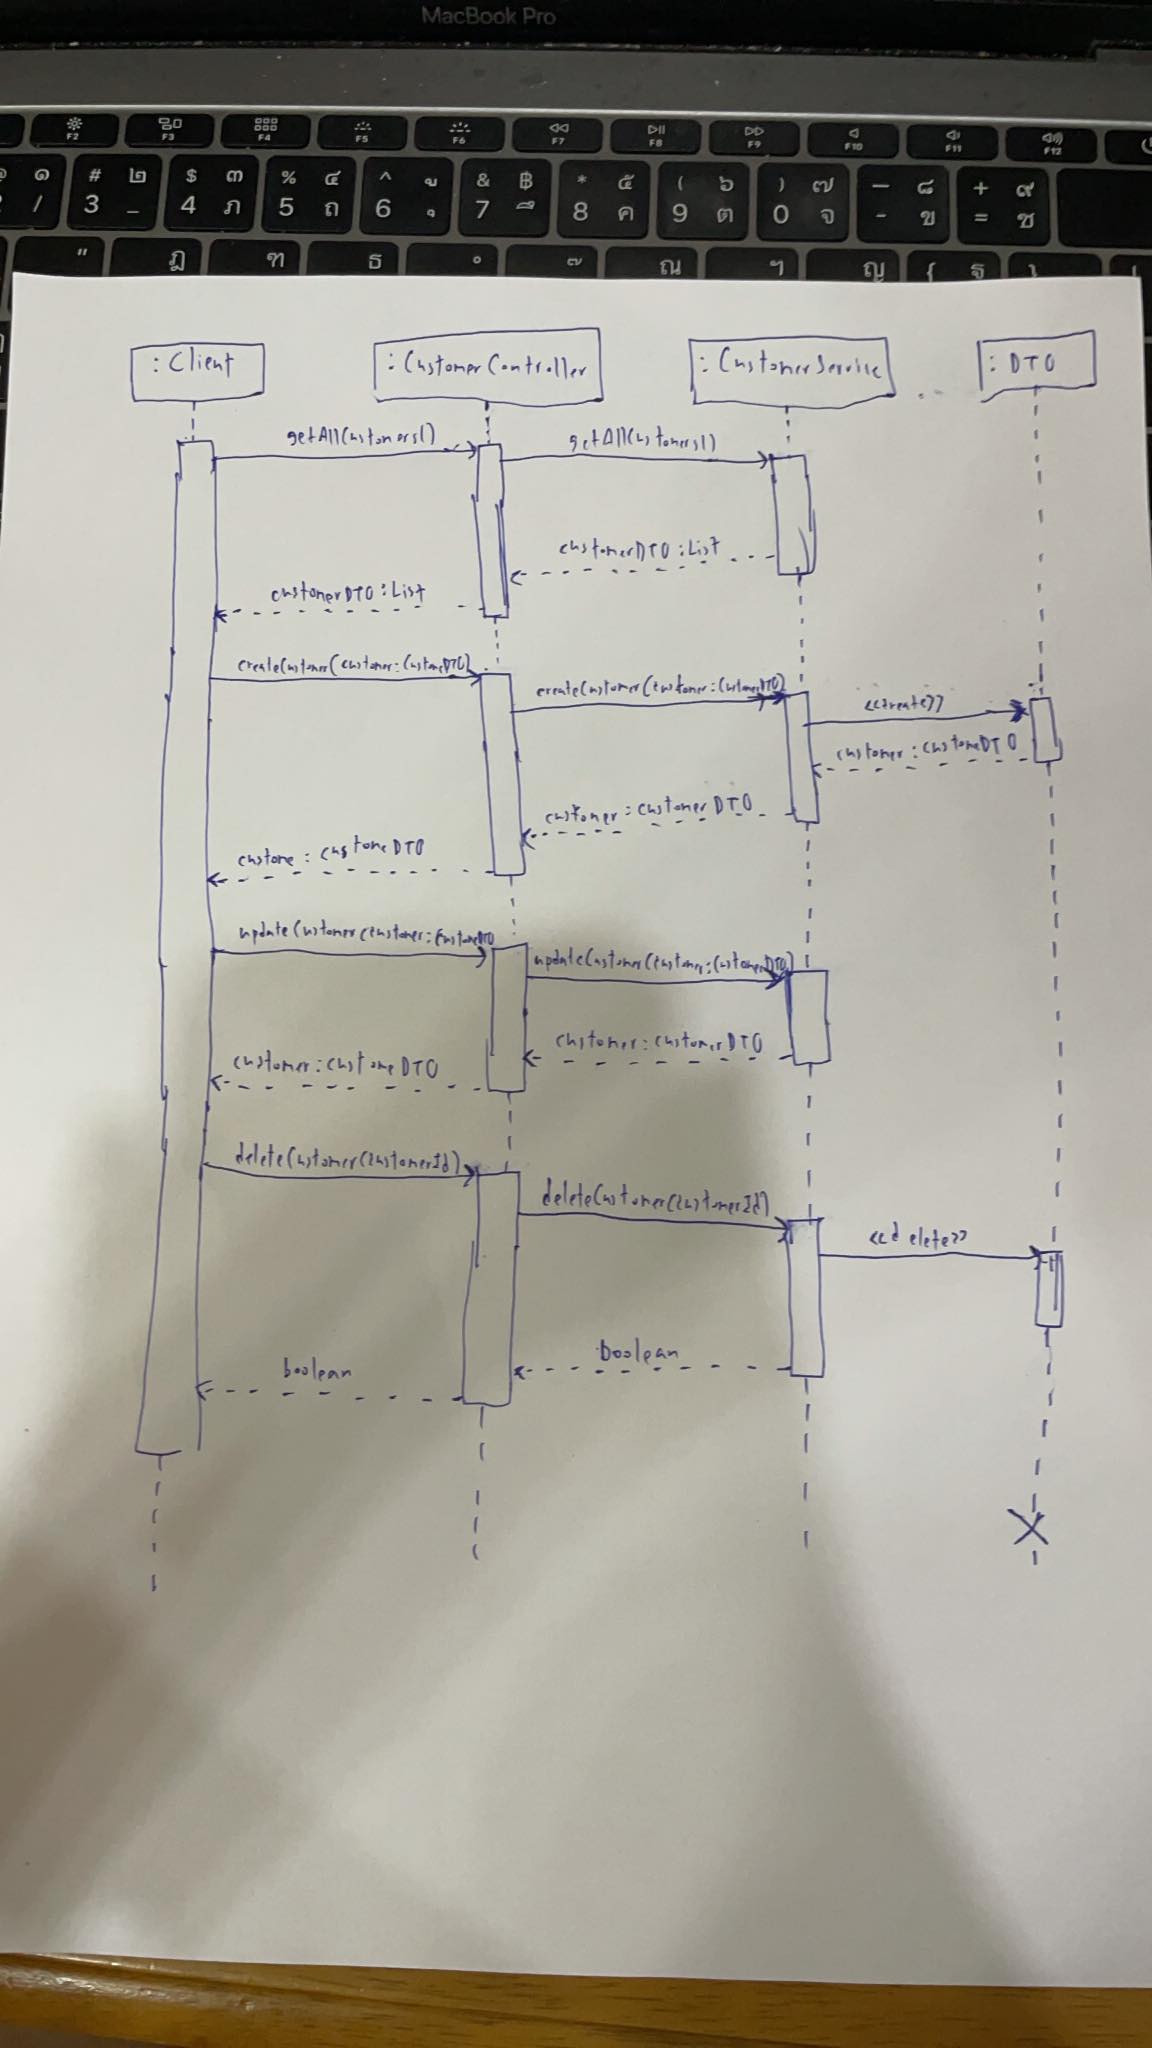 MacBook Pro
F2 F3 F4 F5 F6 F7 F8 F9 F10 F11 F12
๑ # ๒ $ ๓ % ๔ ^ ู & ฿ * ๕ ( ๖ ) ๗ — ๘ + ๙
/ 3 _ 4 ภ 5 ถ 6 ุ 7 ึ 8 ค 9 ต 0 จ - ข = ช
" ฎ ฑ ธ ํ ๊ ณ ฯ ญ { ฐ }
:Client
:CustomerController
:CustomerService
:DTO
getAllCustomers()
getAllCustomers()
customerDTO:List
customerDTO:List
createCustomer(customer:CustomeDTO)
createCustomer(customer:CustomerDTO)
<<create>>
customer:customeDTO
customer:customerDTO
custome:custome DTO
updateCustomer(customer:CustomeDTO
updateCustomer(customer:CustomerDTO)
customer:customerDTO
customer:customeDTO
deleteCustomer(customerId)
deleteCustomer(customerId)
<<delete>>
boolean
boolean